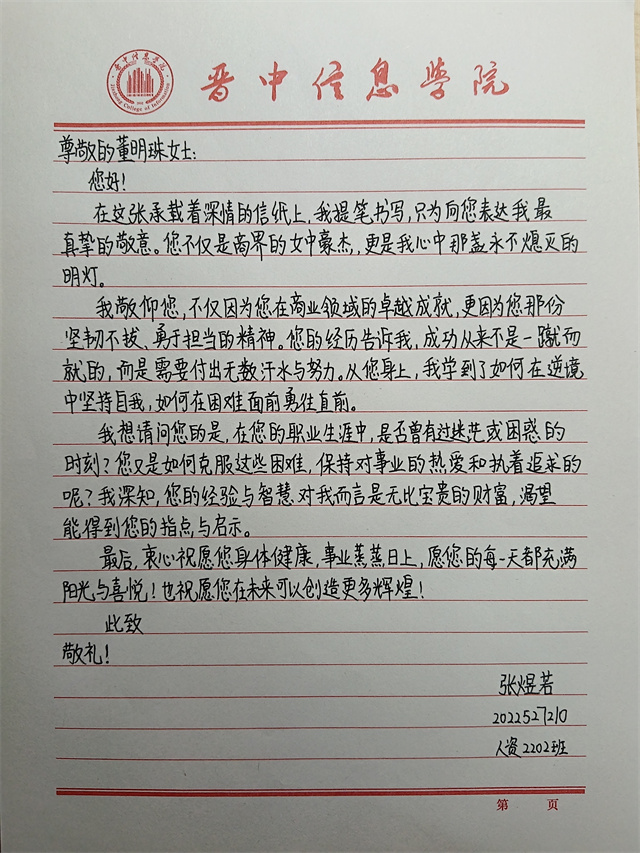 晋中信息学院
晋中信息学院
Jinzhong College of Information
尊敬的董明珠女士:
您好!
在这张承载着深情的信纸上,我提笔书写,只为向您表达我最
真挚的敬意。您不仅是商界的女中豪杰,更是我心中那盏永不熄灭的
明灯。
我敬仰您,不仅因为您在商业领域的卓越成就,更因为您那份
坚韧不拔、勇于担当的精神。您的经历告诉我,成功从来不是一蹴而
就的,而是需要付出无数汗水与努力。从您身上,我学到了如何在逆境
中坚持自我,如何在困难面前勇往直前。
我想请问您的是,在您的职业生涯中,是否曾有过迷茫或困惑的
时刻?您又是如何克服这些困难,保持对事业的热爱和执着追求的
呢?我深知,您的经验与智慧对我而言是无比宝贵的财富,渴望
能得到您的指点与启示。
最后,衷心祝愿您身体健康,事业蒸蒸日上,愿您的每一天都充满
阳光与喜悦!也祝愿您在未来可以创造更多辉煌!
此致
敬礼!
张煜若
2022527210
人资2202班
第 页